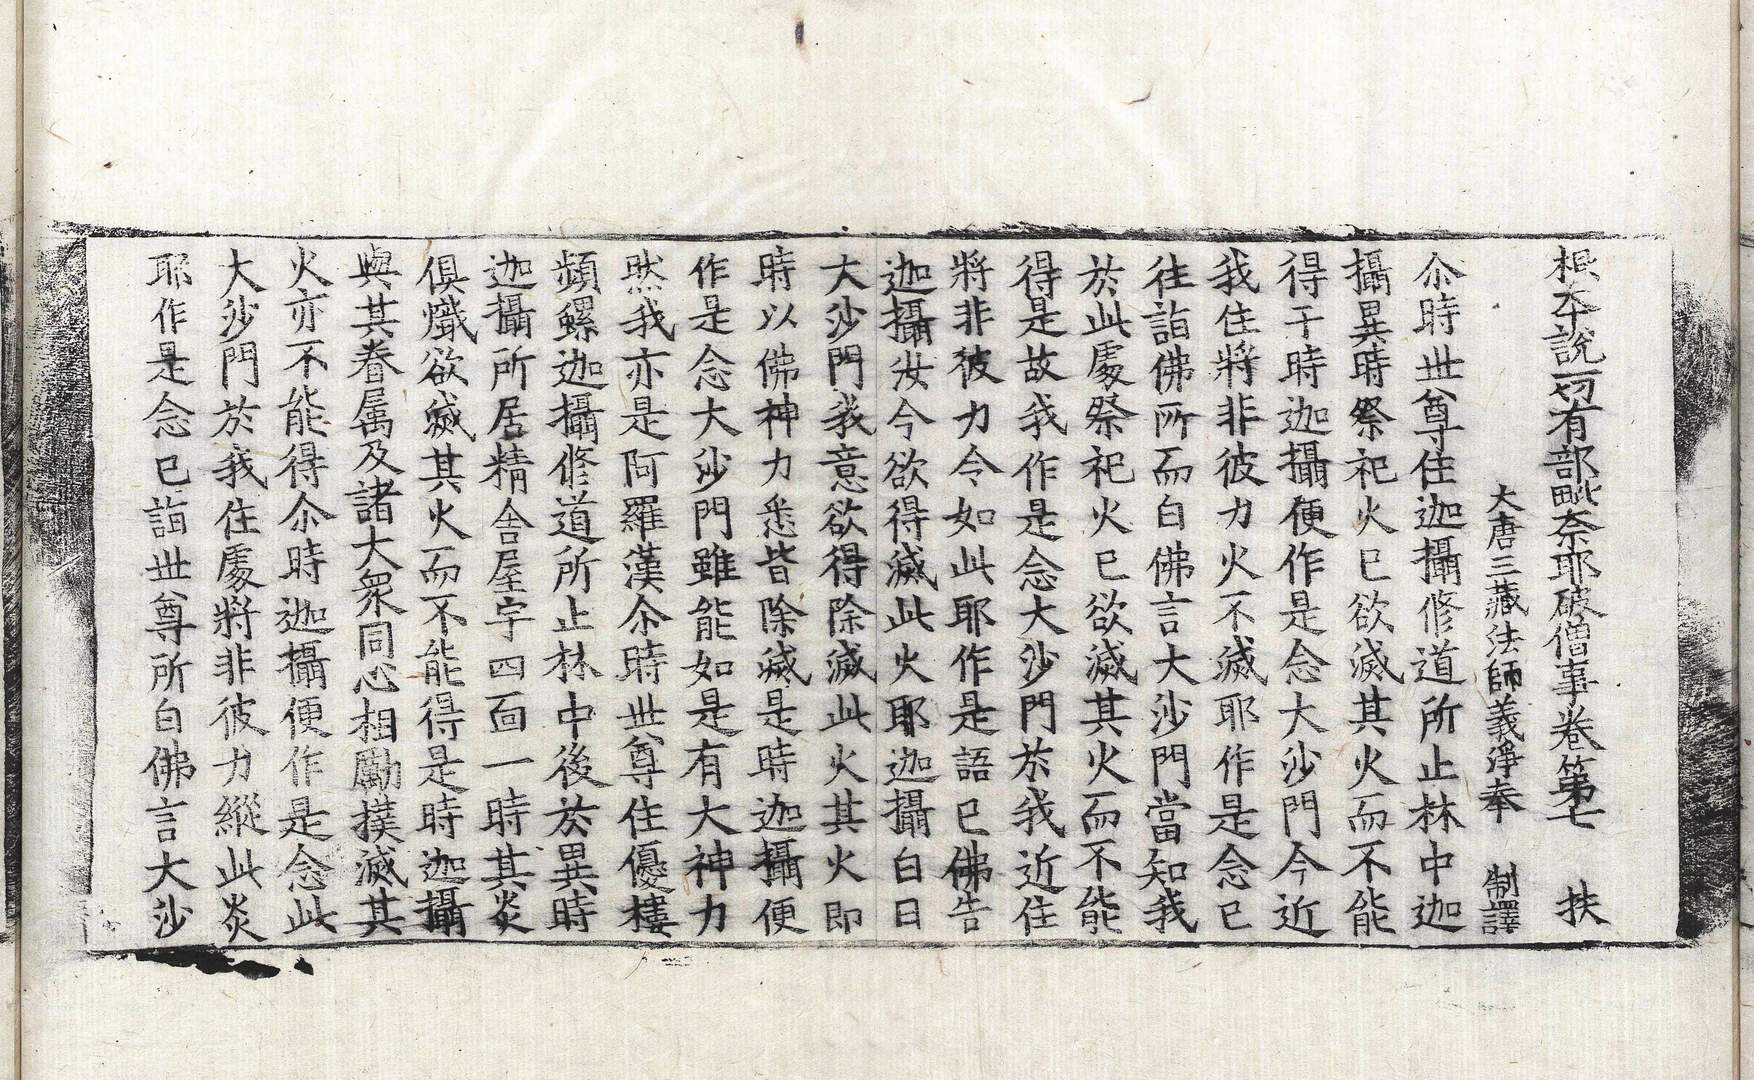 根本說一切有部毗奈耶破僧事卷第七 扶
大唐三藏法師義淨奉 制譯
尒時世尊住迦攝修道所止林中迦
攝異時祭祀火已欲滅其火而不能
得于時迦攝便作是念大沙門今近
我住將非彼力火不滅耶作是念已
往詣佛所而白佛言大沙門當知我
於此處祭祀火已欲滅其火而不能
得是故我作是念大沙門於我近住
將非彼力令如此耶作是語已佛告
迦攝汝今欲得滅此火耶迦攝白曰
大沙門我意欲得除滅此火其火即
時以佛神力悉皆除滅是時迦攝便
作是念大沙門雖能如是有大神力
然我亦是阿羅漢尒時世尊住優樓
頻螺迦攝修道所止林中後於異時
迦攝所居精舍屋宇四面一時其炎
俱熾欲滅其火而不能得是時迦攝
與其眷属及諸大衆同心相勵撲滅其
火亦不能得尒時迦攝便作是念此
大沙門於我住處將非彼力縱此炎
耶作是念已詣世尊所白佛言大沙